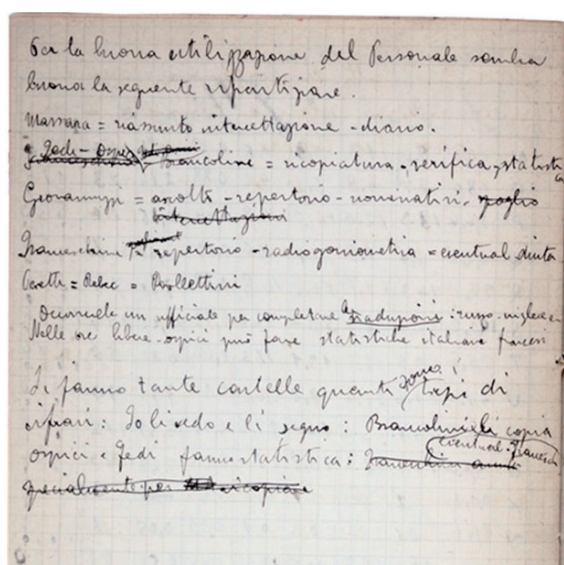 Per la buona utilizzazione del Personale sembra
buona la seguente ripartizione.
Massara = riassunto intercettazione - diario.
Jedi - Ospici Brancolini = ricopiatura - verifica, statist
Giovannozzi = ascolto - repertorio - nominativi, spoglio
intercettazioni
Franceschini repertorio - radiogoniometria = eventual
Bollettini
Occorrerebbe un ufficiale per completare le traduzioni: russo - inglese
Nelle ore libere - ospici può fare statistiche italiane francesi
Si fanno tante cartelle quanti sono i tipi di
cifrari: Io li vedo e li segno: Brancolini li copia
ospici e Jedi fanno statistica: eventual. Francesch
specialmente per ricopiare